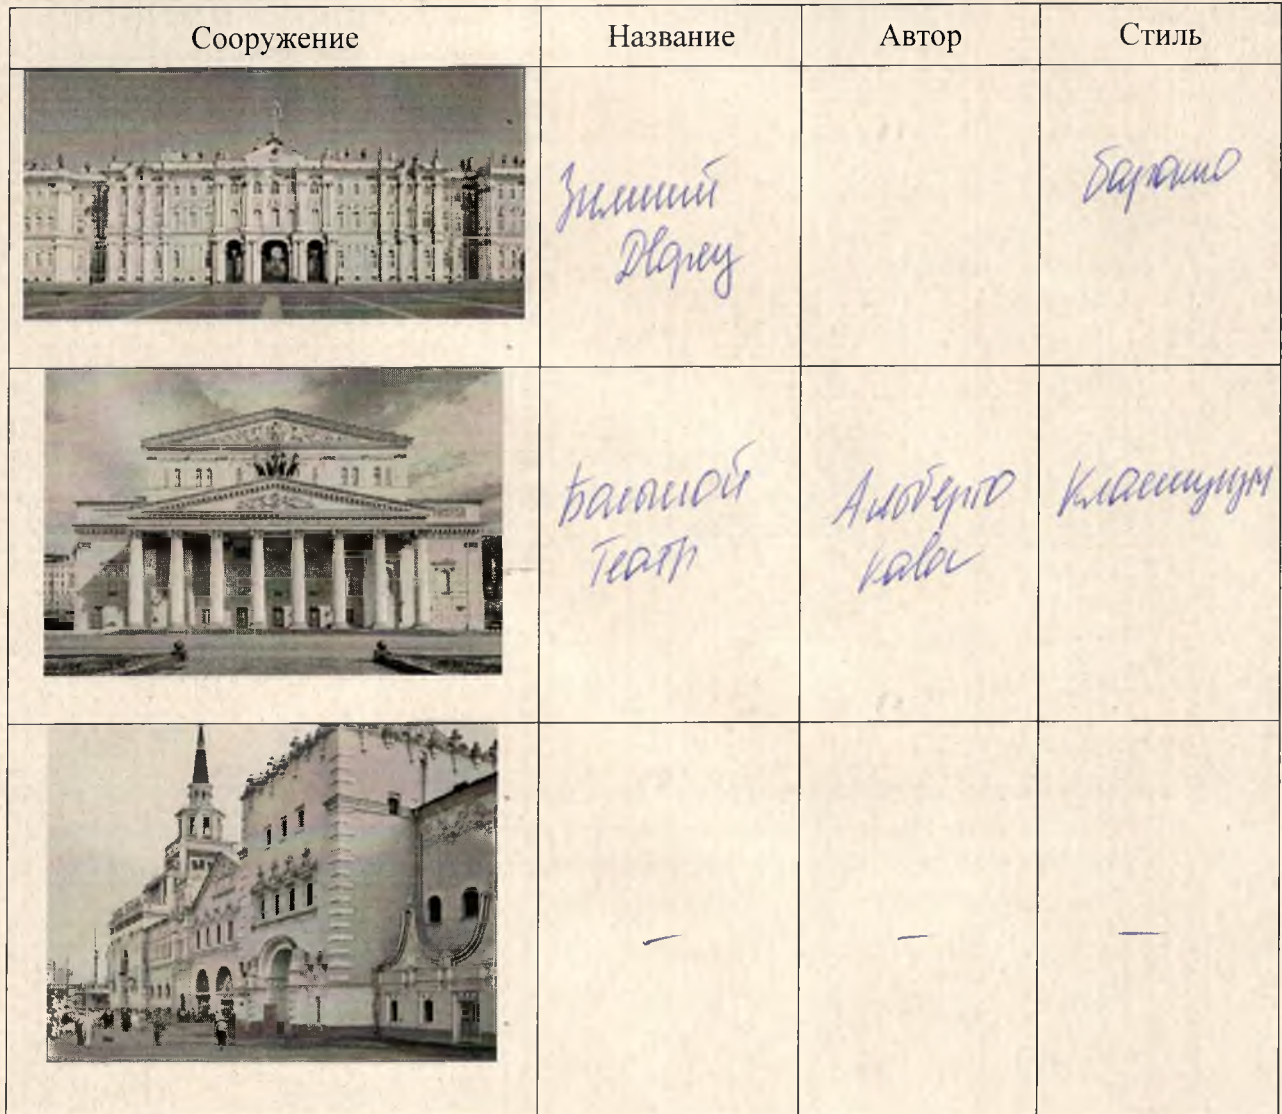 Сооружение Название Автор Стиль
Зимний
Дворец
барокко
Большой
Театр
Альберто
кавос
Классицизм
—
—
—